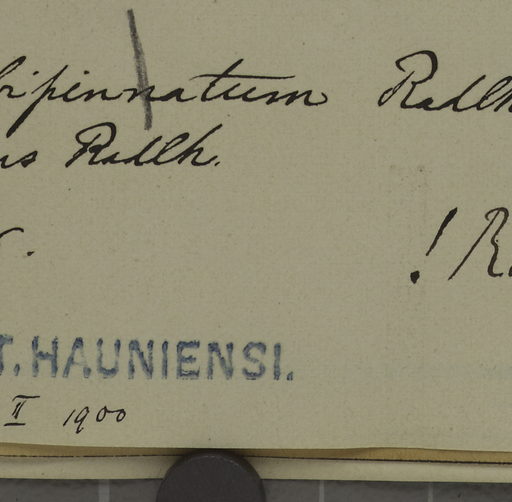 bipinnatum Radlk
us Radlk.
! R
T. HAUNIENSI.
II 1900